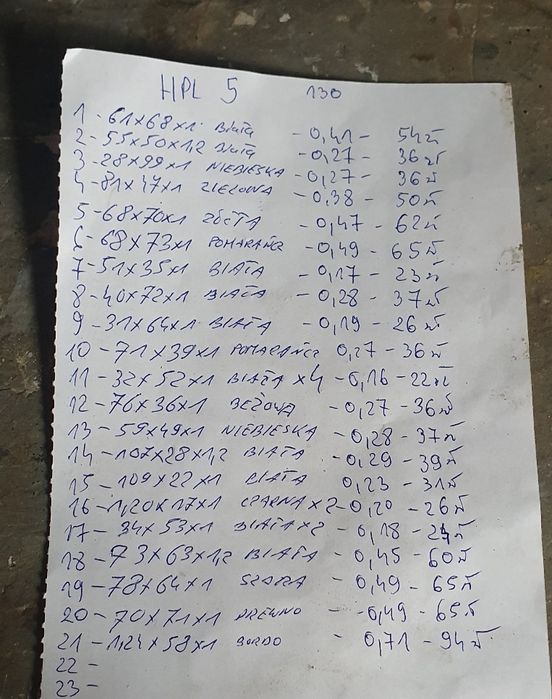 HPL 5 130
1 - 61x68x1 BIAŁA - 0,41 - 54 zł
2 - 55x50x1,2 BIAŁA - 0,27 - 36 zł
3 - 28x99x1 NIEBIESKA - 0,27 - 36 zł
4 - 81x47x1 ZIELONA - 0,38 - 50 zł
5 - 68x70x1 ŻÓŁTA - 0,47 - 62 zł
6 - 68x73x1 POMARAŃCZ - 0,49 - 65 zł
7 - 51x35x1 BIAŁA - 0,17 - 23 zł
8 - 40x72x1 BIAŁA - 0,28 - 37 zł
9 - 31x64x1 BIAŁA - 0,19 - 26 zł
10 - 71x39x1 POMARAŃCZ 0,27 - 36 zł
11 - 32x52x1 BIAŁA x4 - 0,16 - 22 zł
12 - 76x36x1 BEŻOWA - 0,27 - 36 zł
13 - 59x49x1 NIEBIESKA - 0,28 - 37 zł
14 - 107x28x1,2 BIAŁA - 0,29 - 39 zł
15 - 109x22x1 BIAŁA 0,23 - 31 zł
16 - 1,20x17x1 CZARNA x2 - 0,20 - 26 zł
17 - 34x53x1 BIAŁA x2 - 0,18 - 24 zł
18 - 73x63x1,2 BIAŁA - 0,45 - 60 zł
19 - 78x64x1 SZARA - 0,49 - 65 zł
20 - 70x71x1 DREWNO - 0,49 - 65 zł
21 - 1,24x58x1 BORDO - 0,71 - 94 zł
22 -
23 -